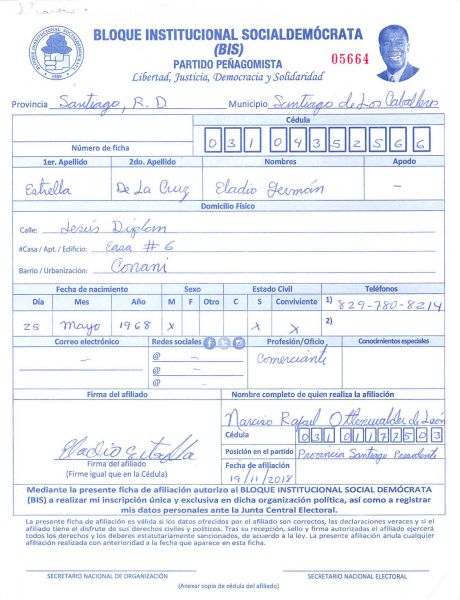 BLOQUE INSTITUCIONAL SOCIALDEMÓCRATA
(BIS)
PARTIDO PEÑAGOMISTA
05664
Libertad, Justicia, Democracia y Solidaridad
Provincia Santiago, R.D Municipio Santiago de Los Caballeros
Cédula
Número de ficha 031 0435256 6
1er. Apellido 2do. Apellido Nombres Apodo
Estrella De La Cruz Eladio Germán —
Domicilio Físico
Calle: Jesús Diplan
#Casa / Apt. / Edificio: Casa # 6
Barrio / Urbanización: Conani
Fecha de nacimiento Sexo Estado Civil Teléfonos
Día Mes Año M F Otro C S Conviviente 1) 829-780-8214
25 Mayo 1968 X X X 2)
Correo electrónico Redes sociales Profesión/Oficio Conocimientos especiales
— @ — Comerciante
@ —
@ —
Firma del afiliado Nombre completo de quien realiza la afiliación
Narciso Rafael Ottenwalder de León
Cédula
031 0117750 3
Eladio Estrella
Posición en el partido Provincia Santiago Presidente
Firma del afiliado
(Firme igual que en la Cédula)
Fecha de afiliación
19/11/2018
Mediante la presente ficha de afiliación autorizo al BLOQUE INSTITUCIONAL SOCIAL DEMÓCRATA
(BIS) a realizar mi inscripción única y exclusiva en dicha organización política, así como a registrar
mis datos personales ante la Junta Central Electoral.
La presente ficha de afiliación es válida si los datos ofrecidos por el afiliado son correctos, las declaraciones veraces y si el
afiliado tiene el disfrute de sus derechos civiles y políticos. Tras su recepción, sello y firma autorizadas el afiliado ejercerá
todos los derechos y los deberes estatutariamente sancionados, de acuerdo a la ley. La presente afiliación anula cualquier
afiliación realizada con anterioridad a la fecha que aparece en esta ficha.
SECRETARIO NACIONAL DE ORGANIZACIÓN SECRETARIO NACIONAL ELECTORAL
(Anexar copia de cédula del afiliado)